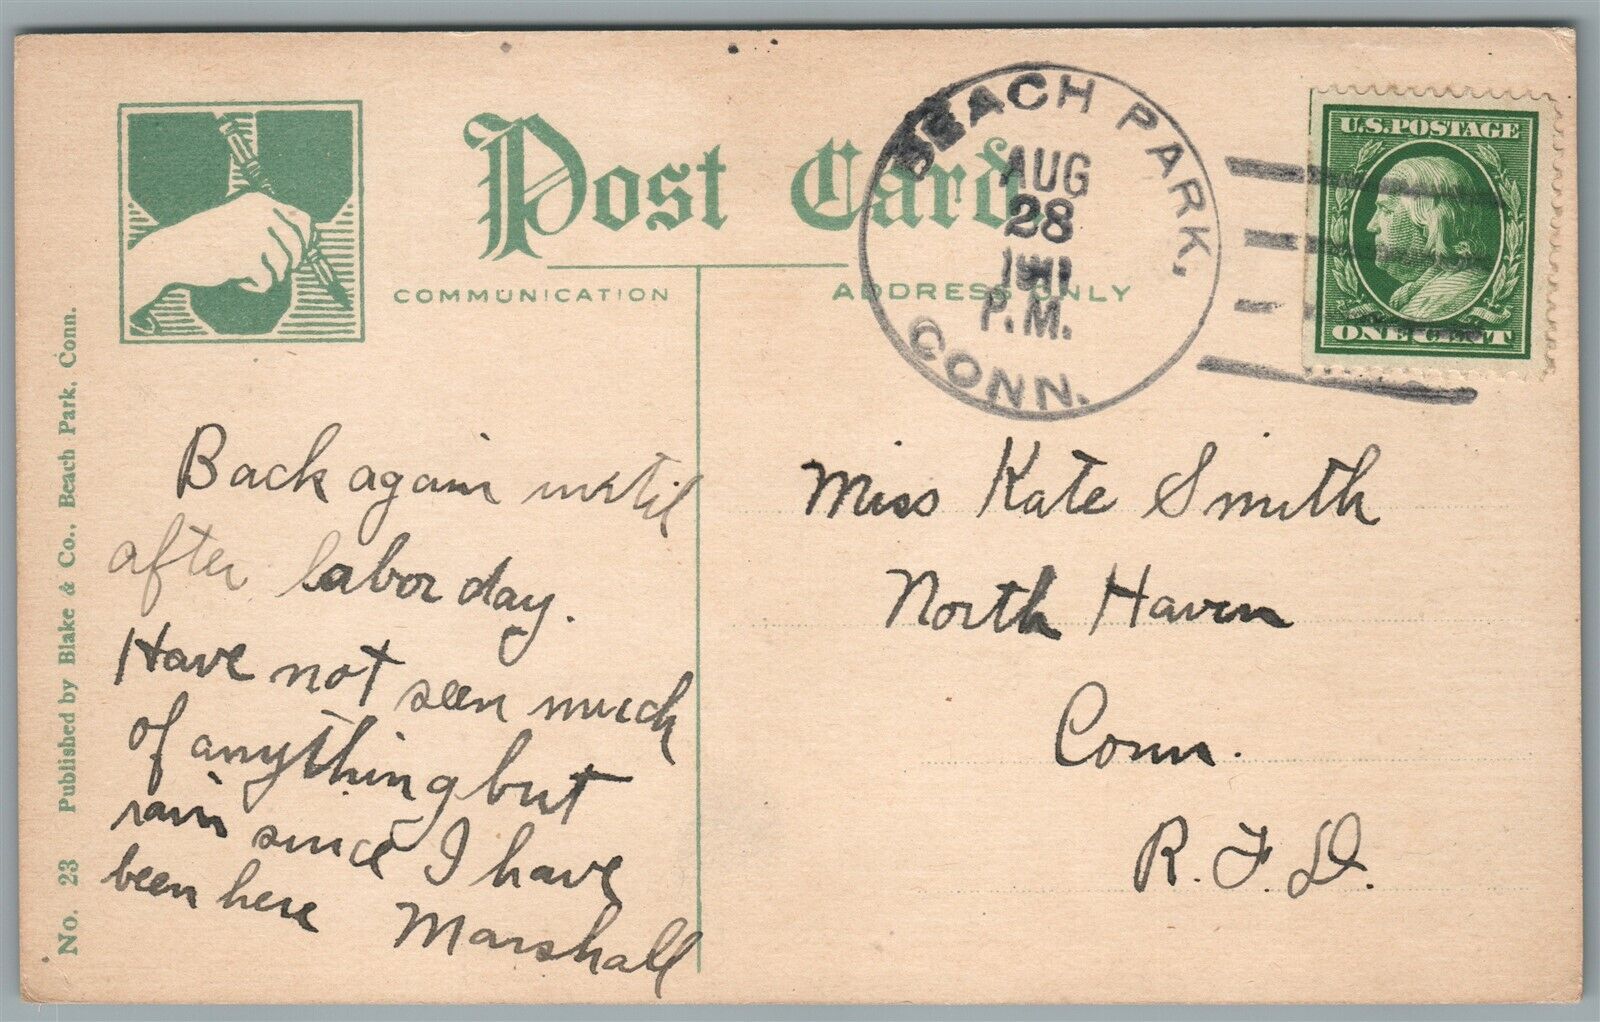 Post Card
COMMUNICATION
ADDRESS ONLY
BEACH PARK,
AUG
28
1911
P.M.
CONN.
U.S. POSTAGE
ONE CENT
No. 23 Published by Blake & Co., Beach Park, Conn.
Back again until
after labor day.
Have not seen much
of anything but
rain since I have
been here Marshall
Miss Kate Smith
North Haven
Conn.
R. F. D.